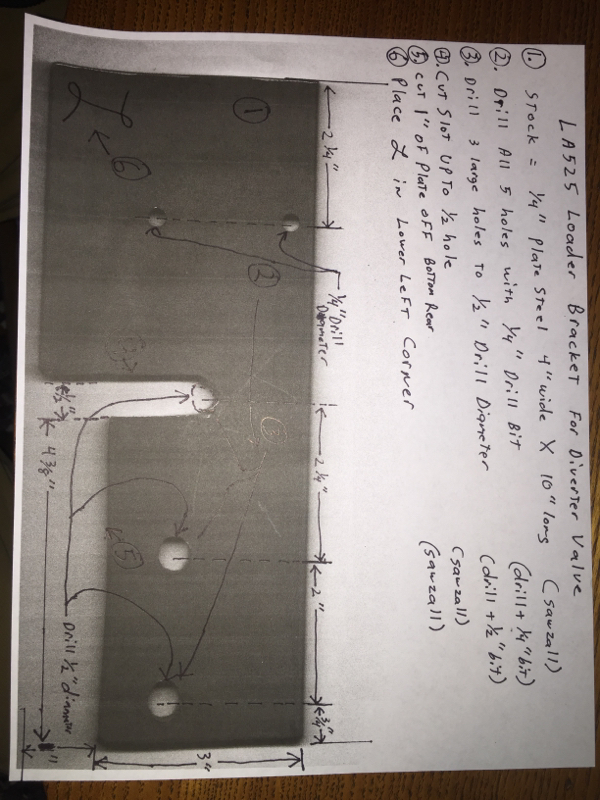 LA525 Loader Bracket For Diverter Valve
1. Stock = 1/4" Plate Steel 4" wide X 10" long (sawzall)
2. Drill All 5 holes with 1/4" Drill Bit (drill + 1/4" bit)
3. Drill 3 large holes to 1/2" Drill Diameter (drill + 1/2" bit)
4. Cut Slot up to 1/2 hole (sawzall)
5. Cut 1" of Plate off Bottom Rear (sawzall)
6 Place L in Lower Left Corner
2 1/4"
1/4" Drill
Diameter
2 1/4"
2"
3/4"
1
2
L
6
5
1/2"
4 3/8"
Drill 1/2" diameter
3"
1"